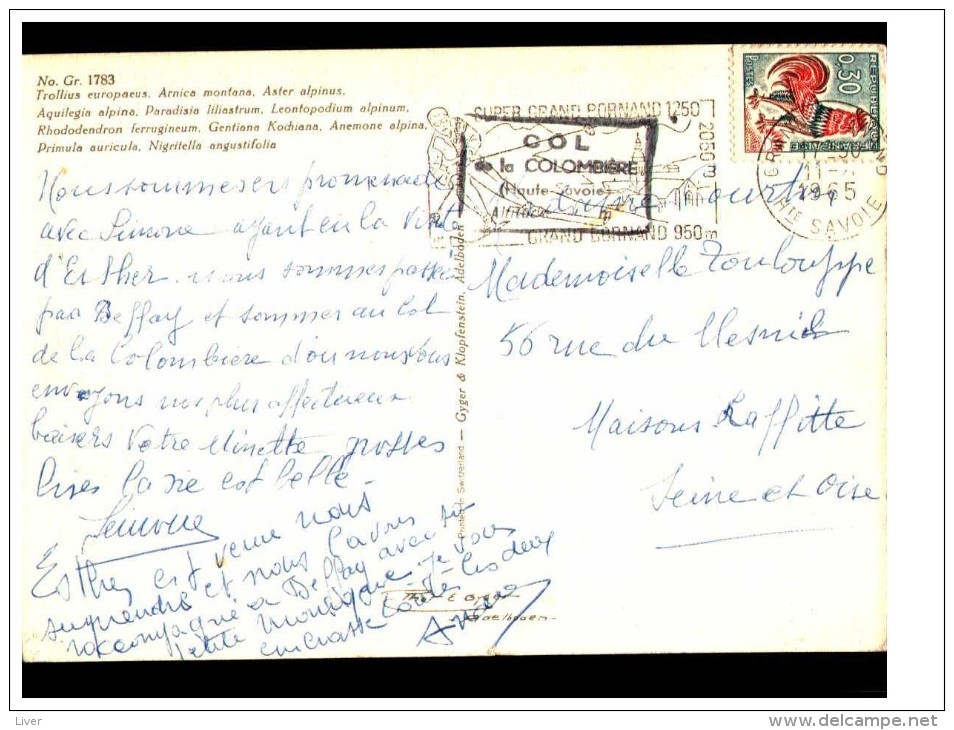 No. Gr. 1783
Trollius europaeus, Arnica montana, Aster alpinus,
Aquilegia alpina, Paradisia liliastrum, Leontopodium alpinum,
Rhododendron ferrugineum, Gentiana Kochiana, Anemone alpina,
Primula auricula, Nigritella angustifolia
Nous sommes en promenade
avec Simone ayant eu la visite
d'Esther nous sommes passés
par Beffay et sommes au Col
de la Colombière d'où nous vous
envoyons nos plus affectueux
baisers Votre Minette grosses
bises la vie est belle
Simone
Esther est venue nous
surprendre et nous l'avons
raccompagné à Beffay avec sa
petite Monique Je vous
embrasse toutes les deux
Gyger & Klopfenstein, Adelboden
Printed in Switzerland
E. Gyger
Adelboden
SUPER GRAND BORNAND 1250
2050m
COL
de la COLOMBIÈRE
(Haute-Savoie)
Altitude m
GRAND BORNAND 950m
REPUBLIQUE FRANÇAISE
POSTES
0,30
11-
1965
HTE SAVOIE
Mademoiselle Toulouppe
56 rue du Mesnil
Maisons Laffitte
Seine et Oise
Liver
www.delcampe.net